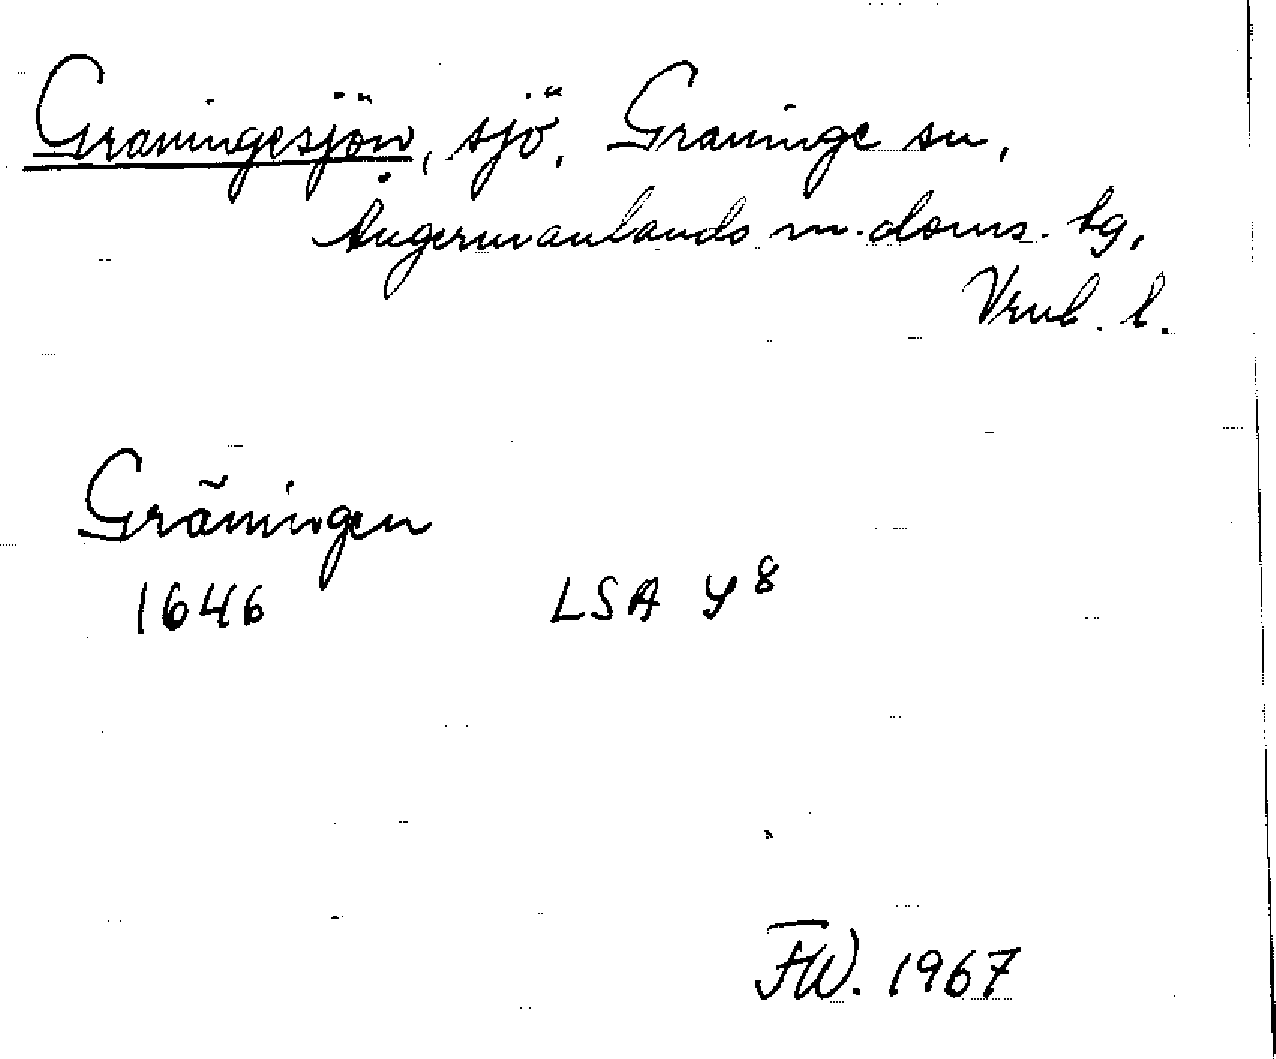 Graningesjön, sjö, Graninge sn,
Ångermanlands m. doms. tg,
Vrnl. l.
Gräningen
1646 LSA Y 8
FW. 1967